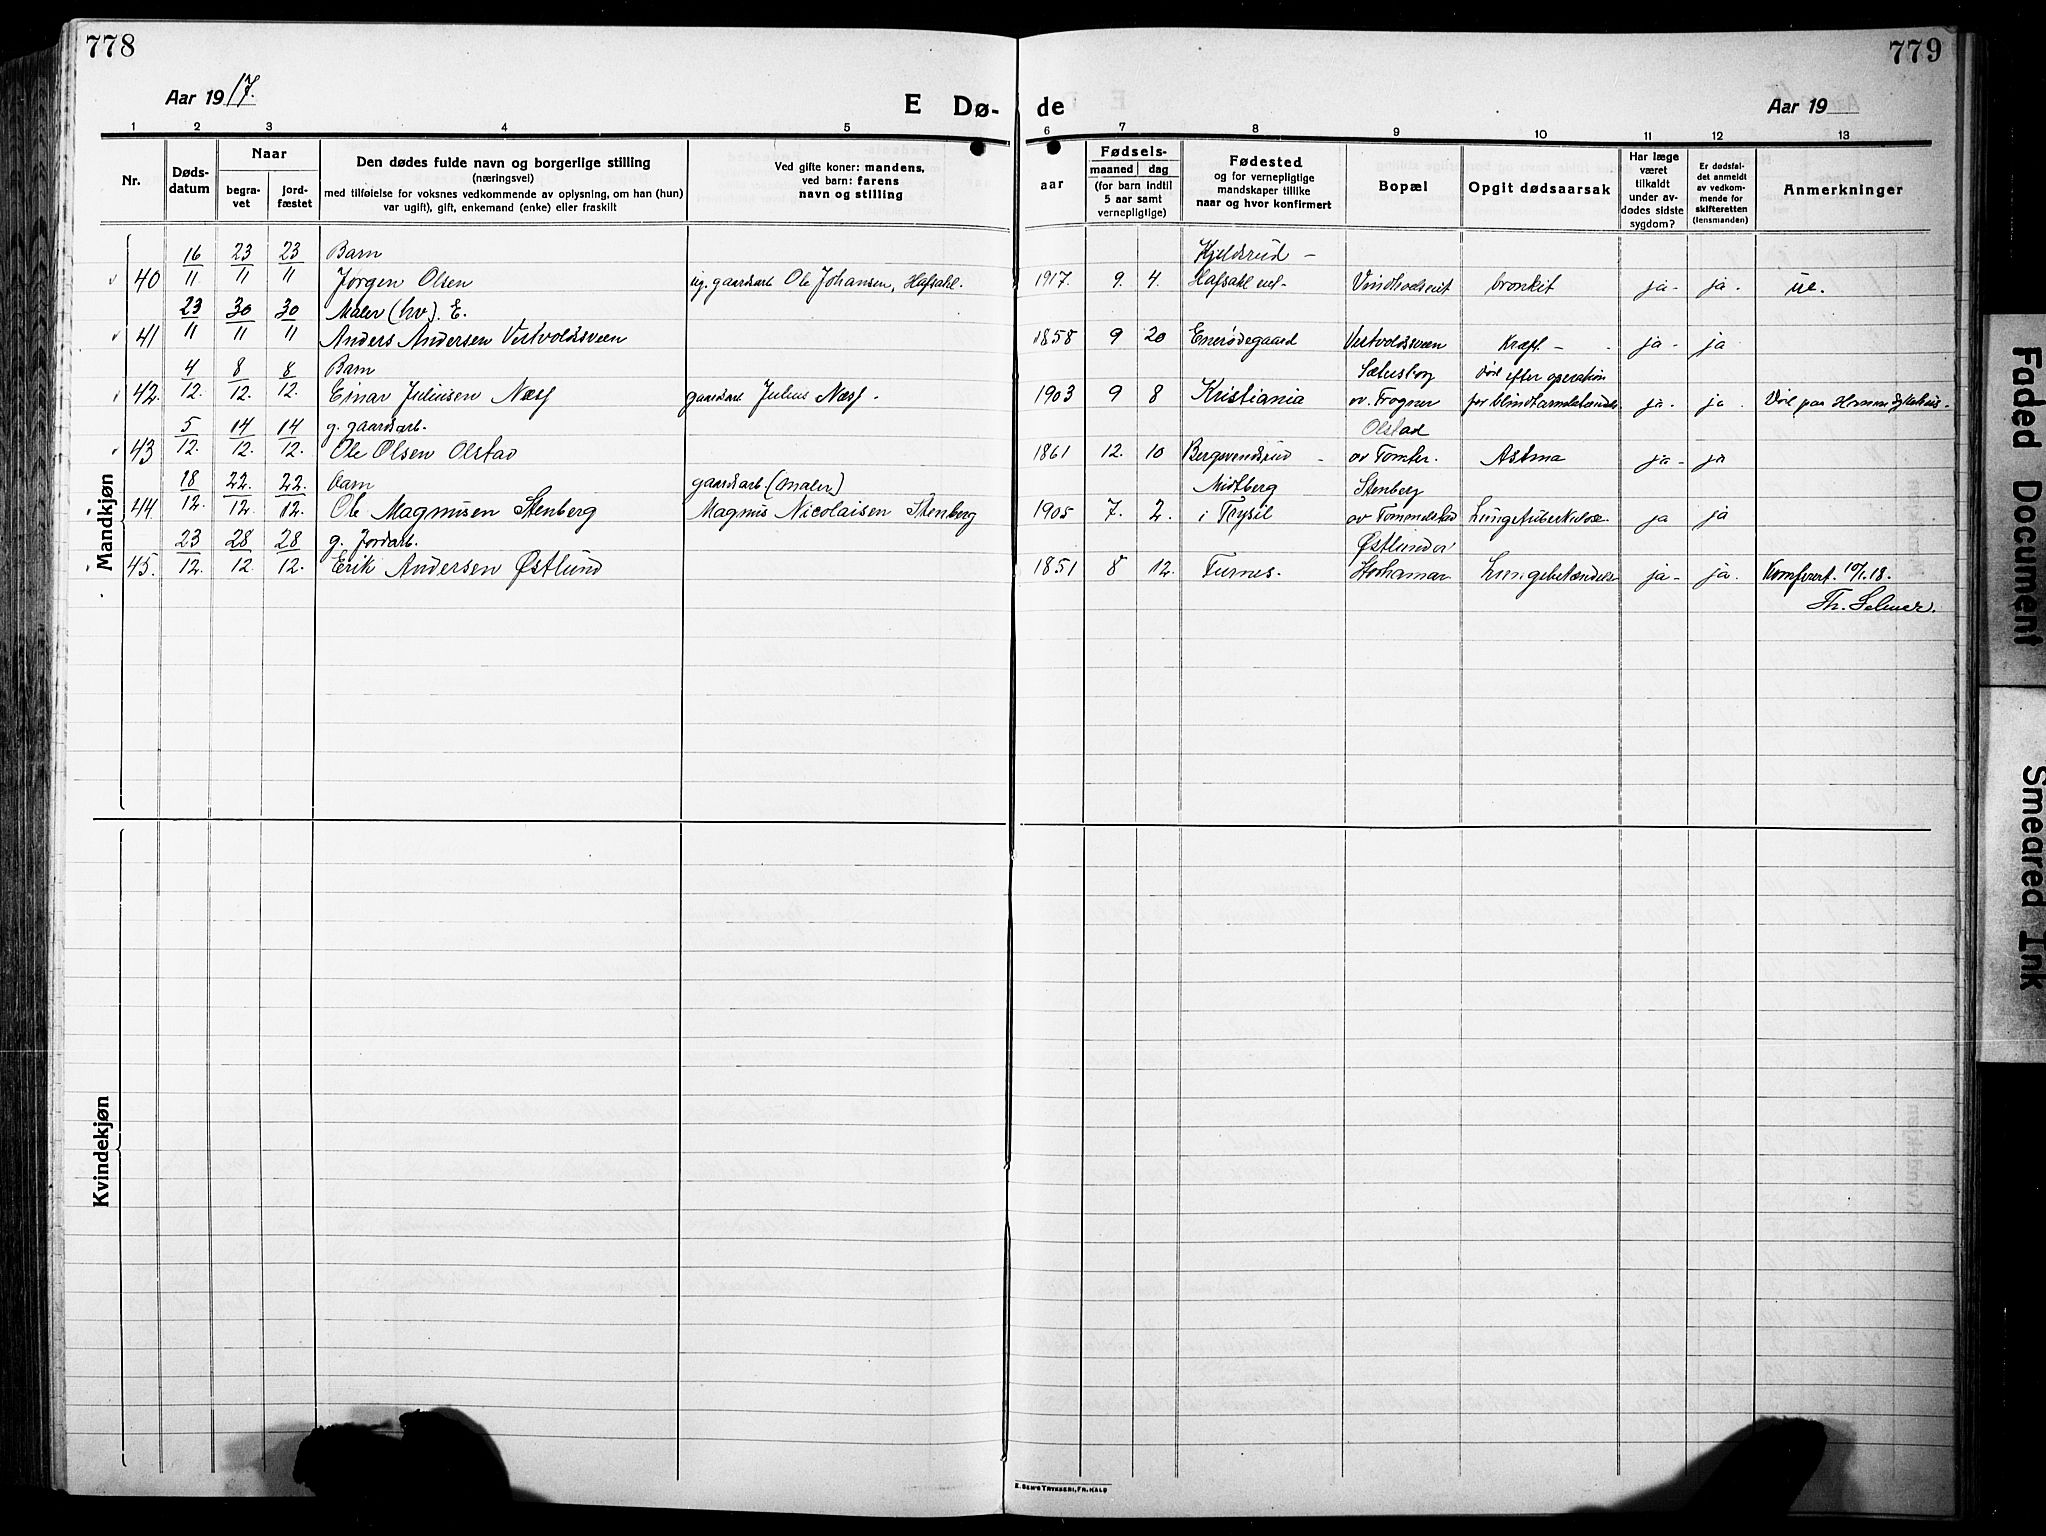 778
779
Aar 1917.
E Dø-
de
Aar 19
1 2 3 4 5 6 7 8 9 10 11 12 13
Nr.
Døds-
datum
Naar
begra-
vet
jord-
fæstet
Den dødes fulde navn og borgerlige stilling
(næringsvei)
med tilføielse for voksnes vedkommende av oplysning, om han (hun)
var ugift), gift, enkemand (enke) eller fraskilt
Ved gifte koner: mandens,
ved barn: farens
navn og stilling
aar
Fødsels-
maaned dag
(for barn indtil
5 aar samt
vernepligtige)
Fødested
og for vernepligtige
mandskaper tillike
naar og hvor konfirmert
Bopæl
Opgit dødsaarsak
Har læge
været
tilkaldt
under av-
dødes sidste
sygdom?
Er dødsfal-
det anmeldt
av vedkom-
mende for
skifteretten
(lensmanden)
Anmerkninger
16 23 23 Barn Kjeldsrud -
40 11 11 11 Jørgen Olsen ug. gaardsarb Ole Johansen, Hafsahl. 1917. 9. 4. Hafsahl bronkit ja- ja. u.
23 30 30 Maler (hv). E.
41 11 11 11 Anders Andersen Vestvoldsveen 1858 9 20 Enerødegaard Vestvoldsveen Kræft - ja- ja
4 8 8 Barn Sætusborg Død efter operation
42. 12. 12. 12. Einar Juliusen Næss gaardsarb Julius Næss. 1903 9 8 Kristiania ov. Fogner for blindtarmsbetændelse ja- ja. Død paa Hamar Sykehus-
5 14 14 g. gaardsarb. Olstad
43 12. 12. 12. Ole Olsen Olstad 1861 12. 10 Bergsvendsrud - ov Tomter. Astma ja- ja
18 22. 22. Barn gaardsarb. (maler) Midtberg Stenberg
44. 12. 12. 12. Ole Magnusen Stenberg Magnus Nicolaisen Stenberg 1905 7. 2. i Trysil ov Tommelstad Lungetuberkulose ja ja
23 28 28 g. Jordarb. Østlund ov
45. 12. 12. 12. Erik Andersen Østlund 1851 8 12. Furnes. Hoshamar Lungebetændelse ja- ja. Konferert. 10/1.18.
Th. Selmer.
Mandkjøn
Kvindekjøn
E. SEM'S TRYKKERI, FR.HALD
Faded Document
Smeared Ink